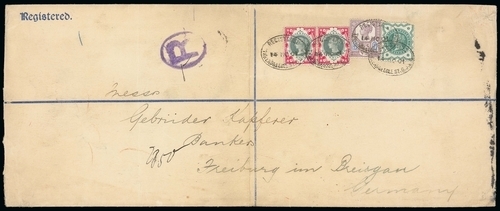 Registered.
R
Messrs
Gebrüder Kapferer
Bankers
7950
Freiburg im Breisgau
Germany